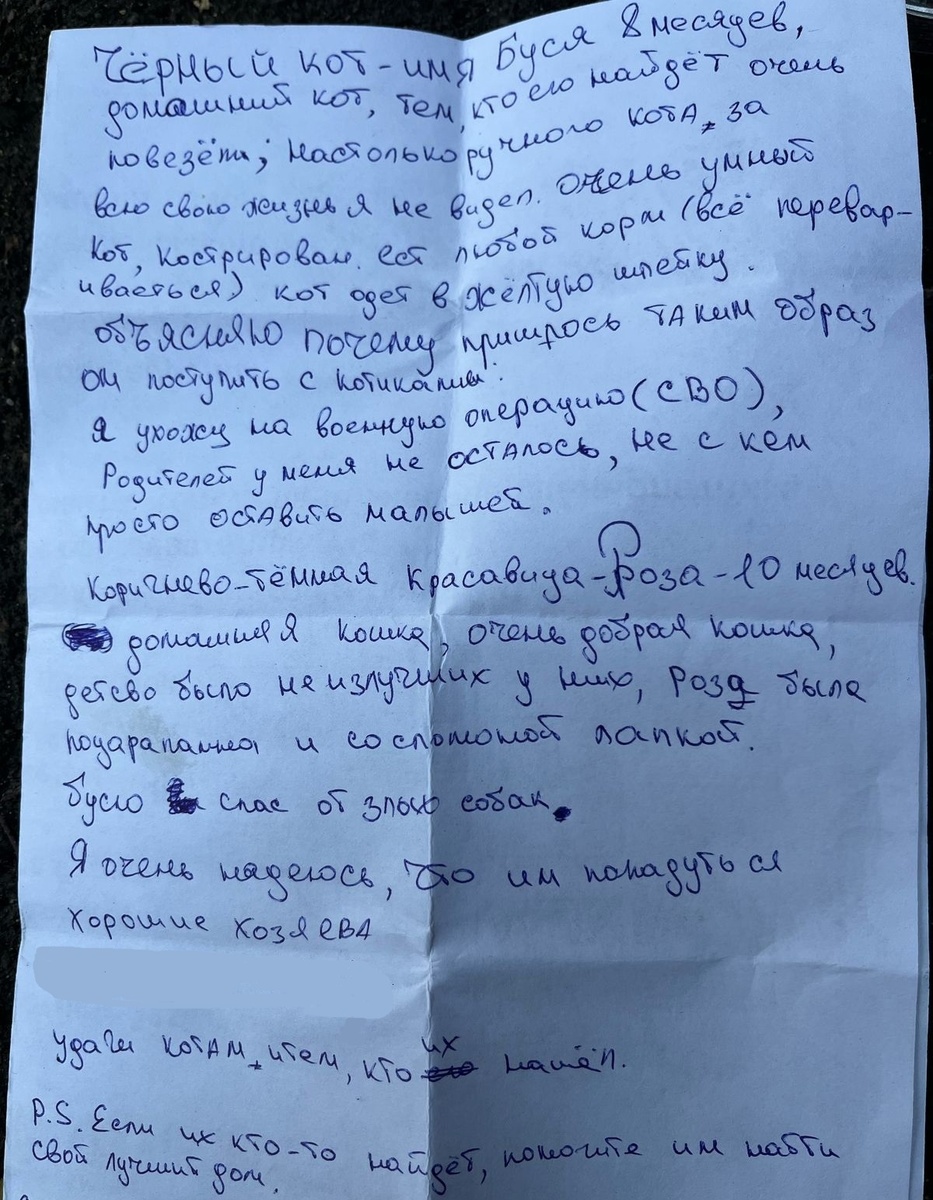 Чёрный кот-имя Буся 8 месяцев,
домашний кот, тем, кто его найдёт очень
повезёт; настолько ручного кота, за
всю свою жизнь я не видел. очень умный
кот, кострирован. ест любой корм (всё перевар-
иваеться) кот одет в жёлтую шлейку.
объясняю почему пришлось таким образ
ом поступить с котиками:
я ухожу на военную операцию (СВО),
Родителей у меня не осталось, не с кем
просто оставить малышей.
Коричнево-тёмная красавица-Роза-10 месяцев.
домашняя кошка, очень добрая кошка,
детсво было не излучших у них, Роза была
поцарапанна и со сломоной лапкой.
Бусю спас от злых собак.
Я очень надеюсь, что им попадуться
хорошие хозяева
удачи котам, и тем, кто их нашёл.
P.S. Если их кто-то найдёт, помогите им найти
свой лучший дом.